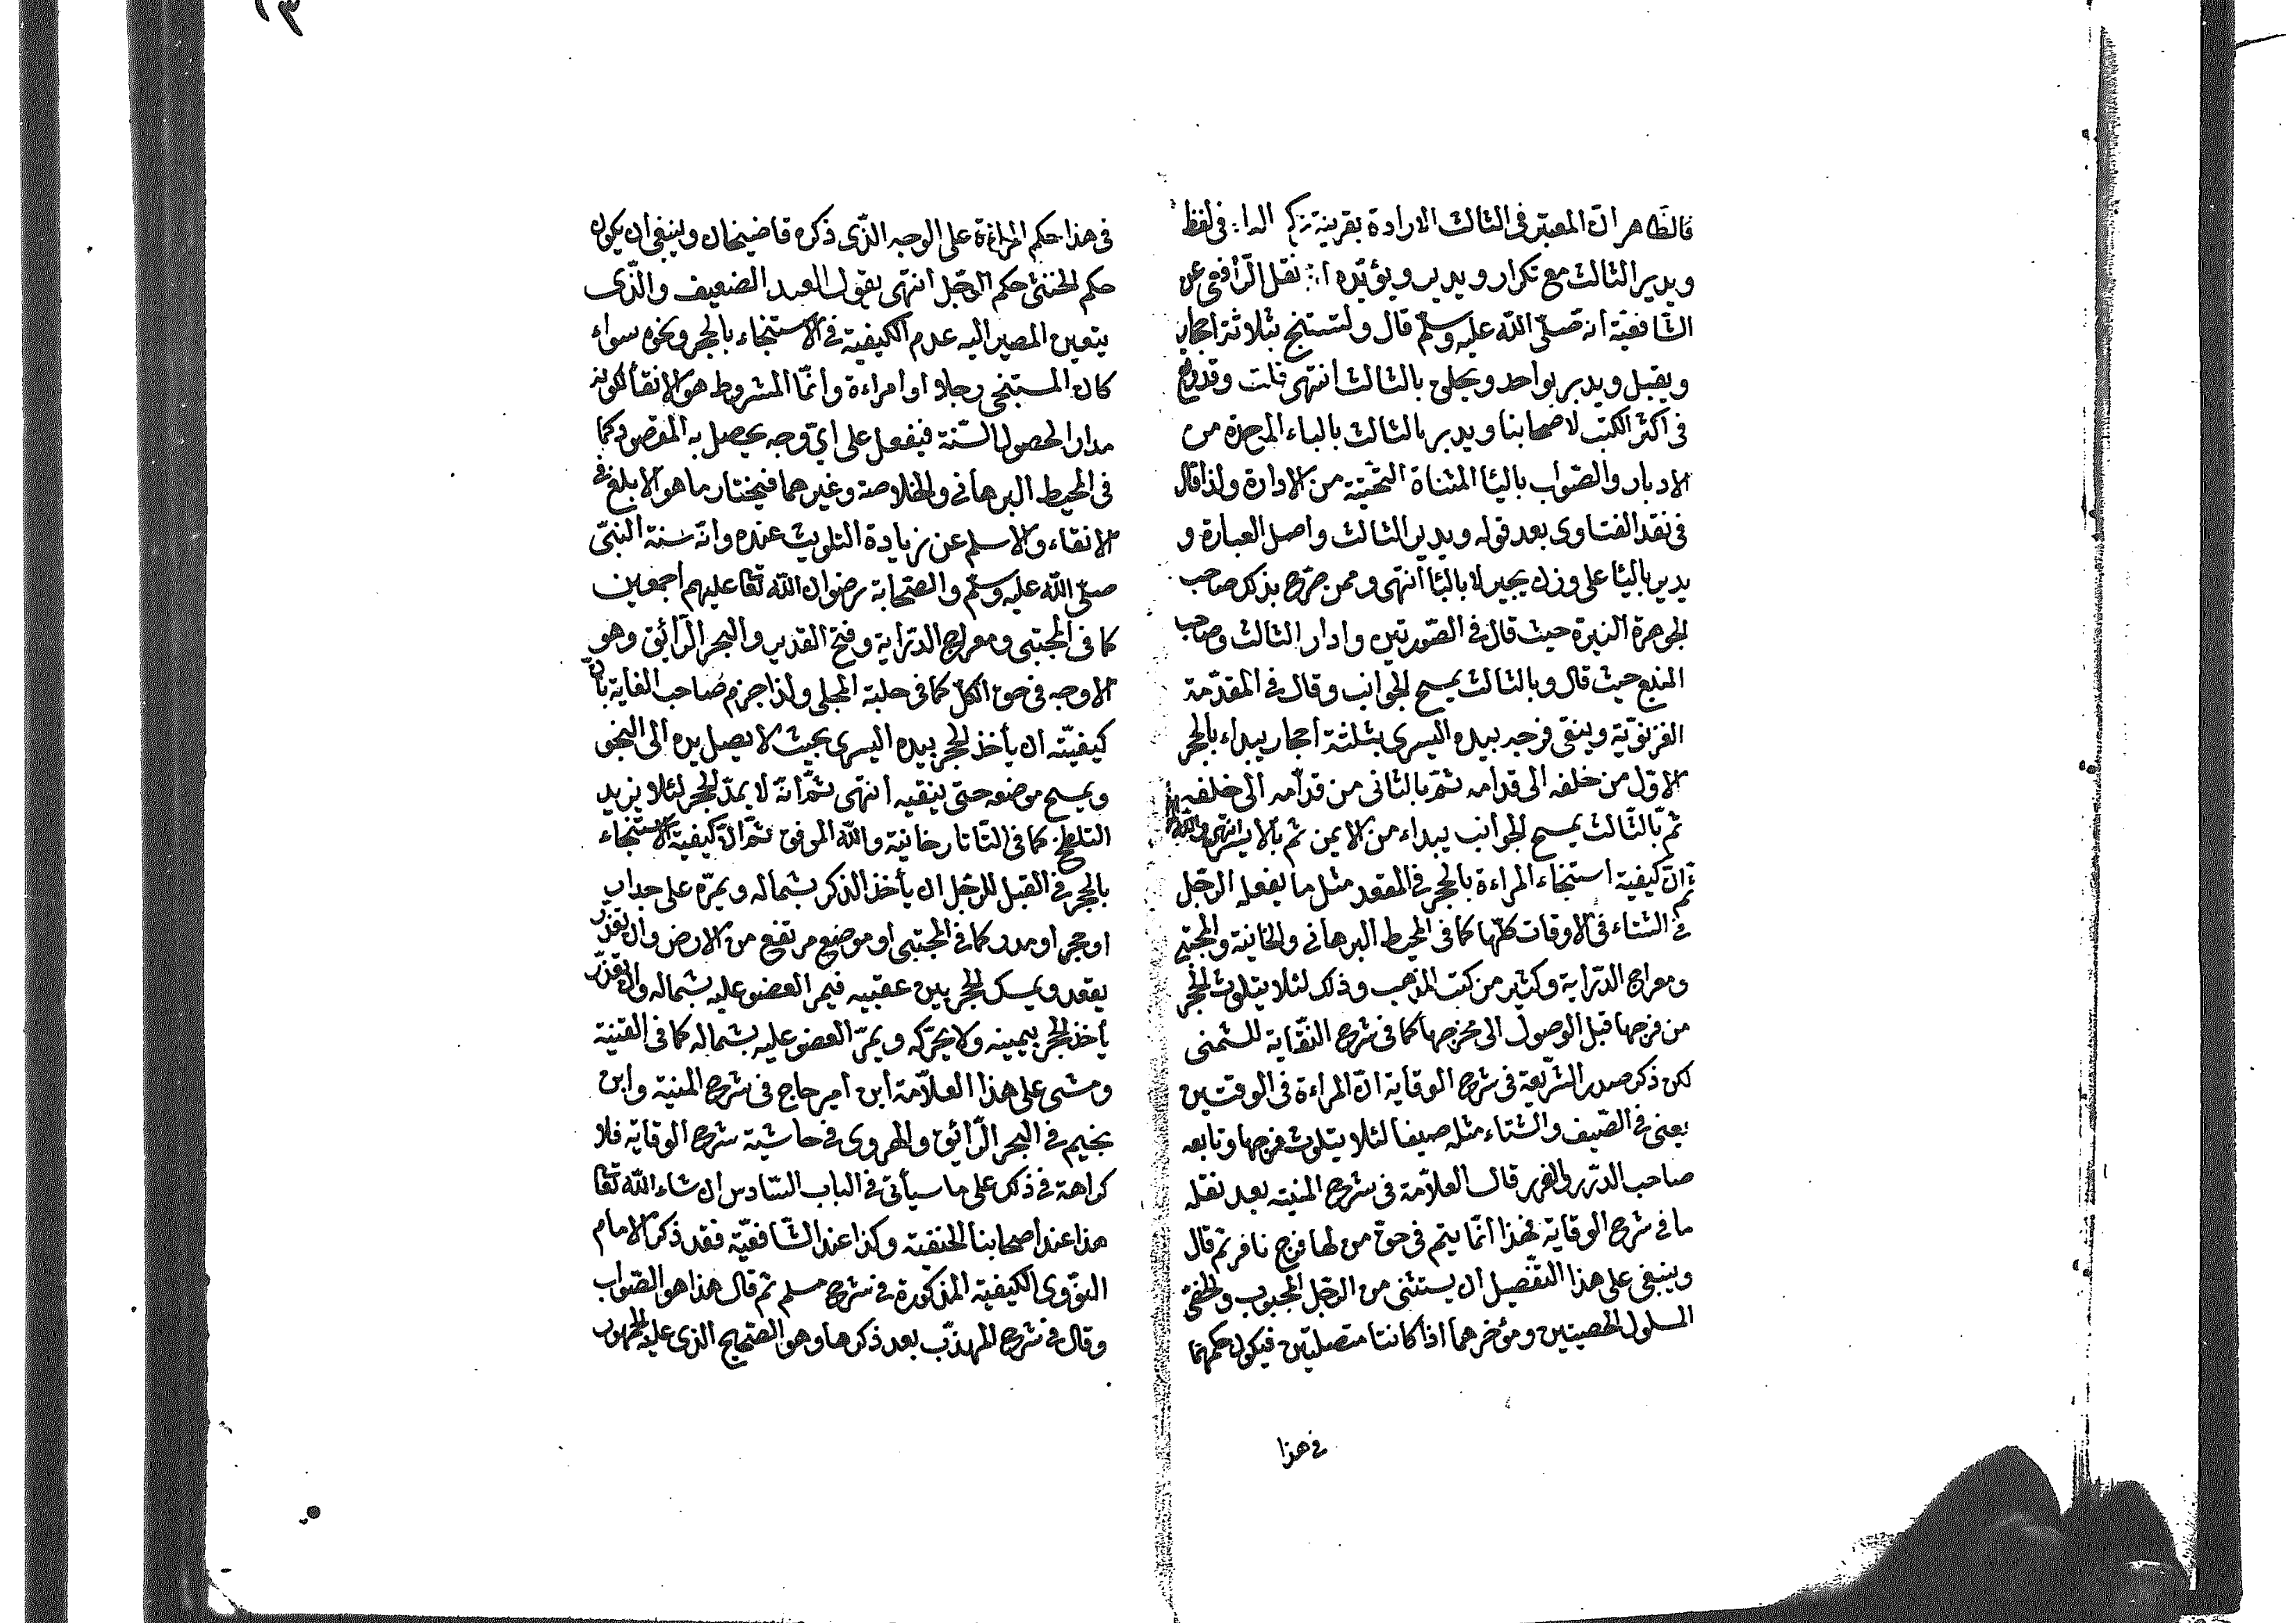 فالظاهر ان المعتبر فى الثالث الادارة بقرينة فى لفظ
ويدير الثالث مع تكرار ويدبر ويؤيده نقل الرافعى عن
الشافعية انه صلى الله عليه وسلم قال ولتستنج بثلاثة احجار
ويقبل ويدبر بواحد ويحلق بالثالث انتهى قلت وقد وقع
فى اكثر الكتب لاصحابنا ويدبر بالثالث بالباء الموحدة من
الادبار والصواب باليا المثناة التحتية من الادارة ولذا قال
فى نقد الفتاوى بعد قوله ويدير الثالث واصل العبارة و
يدير باليا على وزن يجير لا بالبا انتهى وممن صرح بذلك صاحب
الجوهرة النيرة حيث قال فى الصورتين وادار الثالث وصاحب
المنبع حيث قال وبالثالث يمسح الجوانب وقال فى المقدمة
الغزنوية وينقى فرجه بيده اليسرى بثلثة احجار يبداء بالحجر
الاول من خلفه الى قدامه ثم بالثانى من قدامه الى خلفه
ثم بالثالث يمسح الجوانب يبداء من الايمن ثم بالايسر انتهى
ثم ان كيفية استنجاء المراءة بالحجر فى المقعد مثل ما يفعله الرجل
فى الشتاء فى الاوقات كلها كما فى المحيط البرهانى والخانية والمجتبى
ومعراج الدراية وكثير من كتب المذهب وذلك لئلا يتلوث الحجر
من فرجها قبل الوصول الى مخرجها كما فى شرح النقاية للشمنى
لكن ذكر صدر الشريعة فى شرح الوقاية ان المراءة فى الوقتين
يعنى فى الصيف والشتاء مثله صيفا لئلا يتلوث فرجها وتابعه
صاحب الدرر والغرر قال العلامة فى شرح المنية بعد نقله
ما فى شرح الوقاية فهذا انما يتم فى حق من لها فرج نافر ثم قال
وينبغى على هذا التفصيل ان يستثنى من الرجل المجبوب والخصى
المسلول الخصيتين ومؤخرهما اذا كانتا متصلتين فيكون حكمهما
فى هذا
فى هذا حكم المراءة على الوجه الذى ذكره قاضيخان وينبغى ان يكون
حكم الخنثى حكم الرجل انتهى يقول العبد الضعيف والذى
يتعين المصير اليه عدم الكيفية فى الاستنجاء بالحجر ونحوه سواء
كان المستنجى رجلا او امراءة وانما المشروط هو الانقا لكونه
مدار الحصول السنة فيفعل على اى وجه يحصل به المقصود كما
فى المحيط البرهانى والخلاصة وغيرهما فيختار ما هو الابلغ فى
الانقاء والاسلم عن زيادة التلويث عنده وانه سنة النبى
صلى الله عليه وسلم والصحابة رضوان الله تعا عليهم اجمعين
كما فى المجتبى ومعراج الدراية وفتح القدير والبحر الرائق وهو
الاوجه فى حق الكل كما فى حلبة المجلى ولذا جزم صاحب الغاية بان
كيفيته ان يأخذ الحجر بيده اليسرى بحيث لا يصل يده الى النجو
ويمسح موضعه حتى ينقيه انتهى ثم انه لا يمد الحجر لئلا يزيد
التلطخ كما فى التاتارخانية والله الموفق ثم ان كيفية الاستنجاء
بالحجر فى القبل للرجل ان يأخذ الذكر بشماله ويمره على جدار
او حجر او مدر كما فى المجتبى او موضع مرتفع من الارض وان تعذر
يقعد ويمسك الحجر بين عقبيه فيمر العضو عليه بشماله وان تعذر
يأخذ الحجر بيمينه ولا يحركه ويمر العضو عليه بشماله كما فى القنية
ومشى على هذا العلامة ابن امير حاج فى شرح المنية وابن
نجيم فى البحر الرائق والهروى فى حاشية شرح الوقاية فلا
كراهة فى ذلك على ما سيأتى فى الباب السادس ان شاء الله تعا
هذا عند اصحابنا الحنفية وكذا عند الشافعية فقد ذكر الامام
النووى الكيفية المذكورة فى شرح مسلم ثم قال هذا هو الصواب
وقال فى شرح المهذب بعد ذكرها وهو الصحيح الذى عليه الجمهور